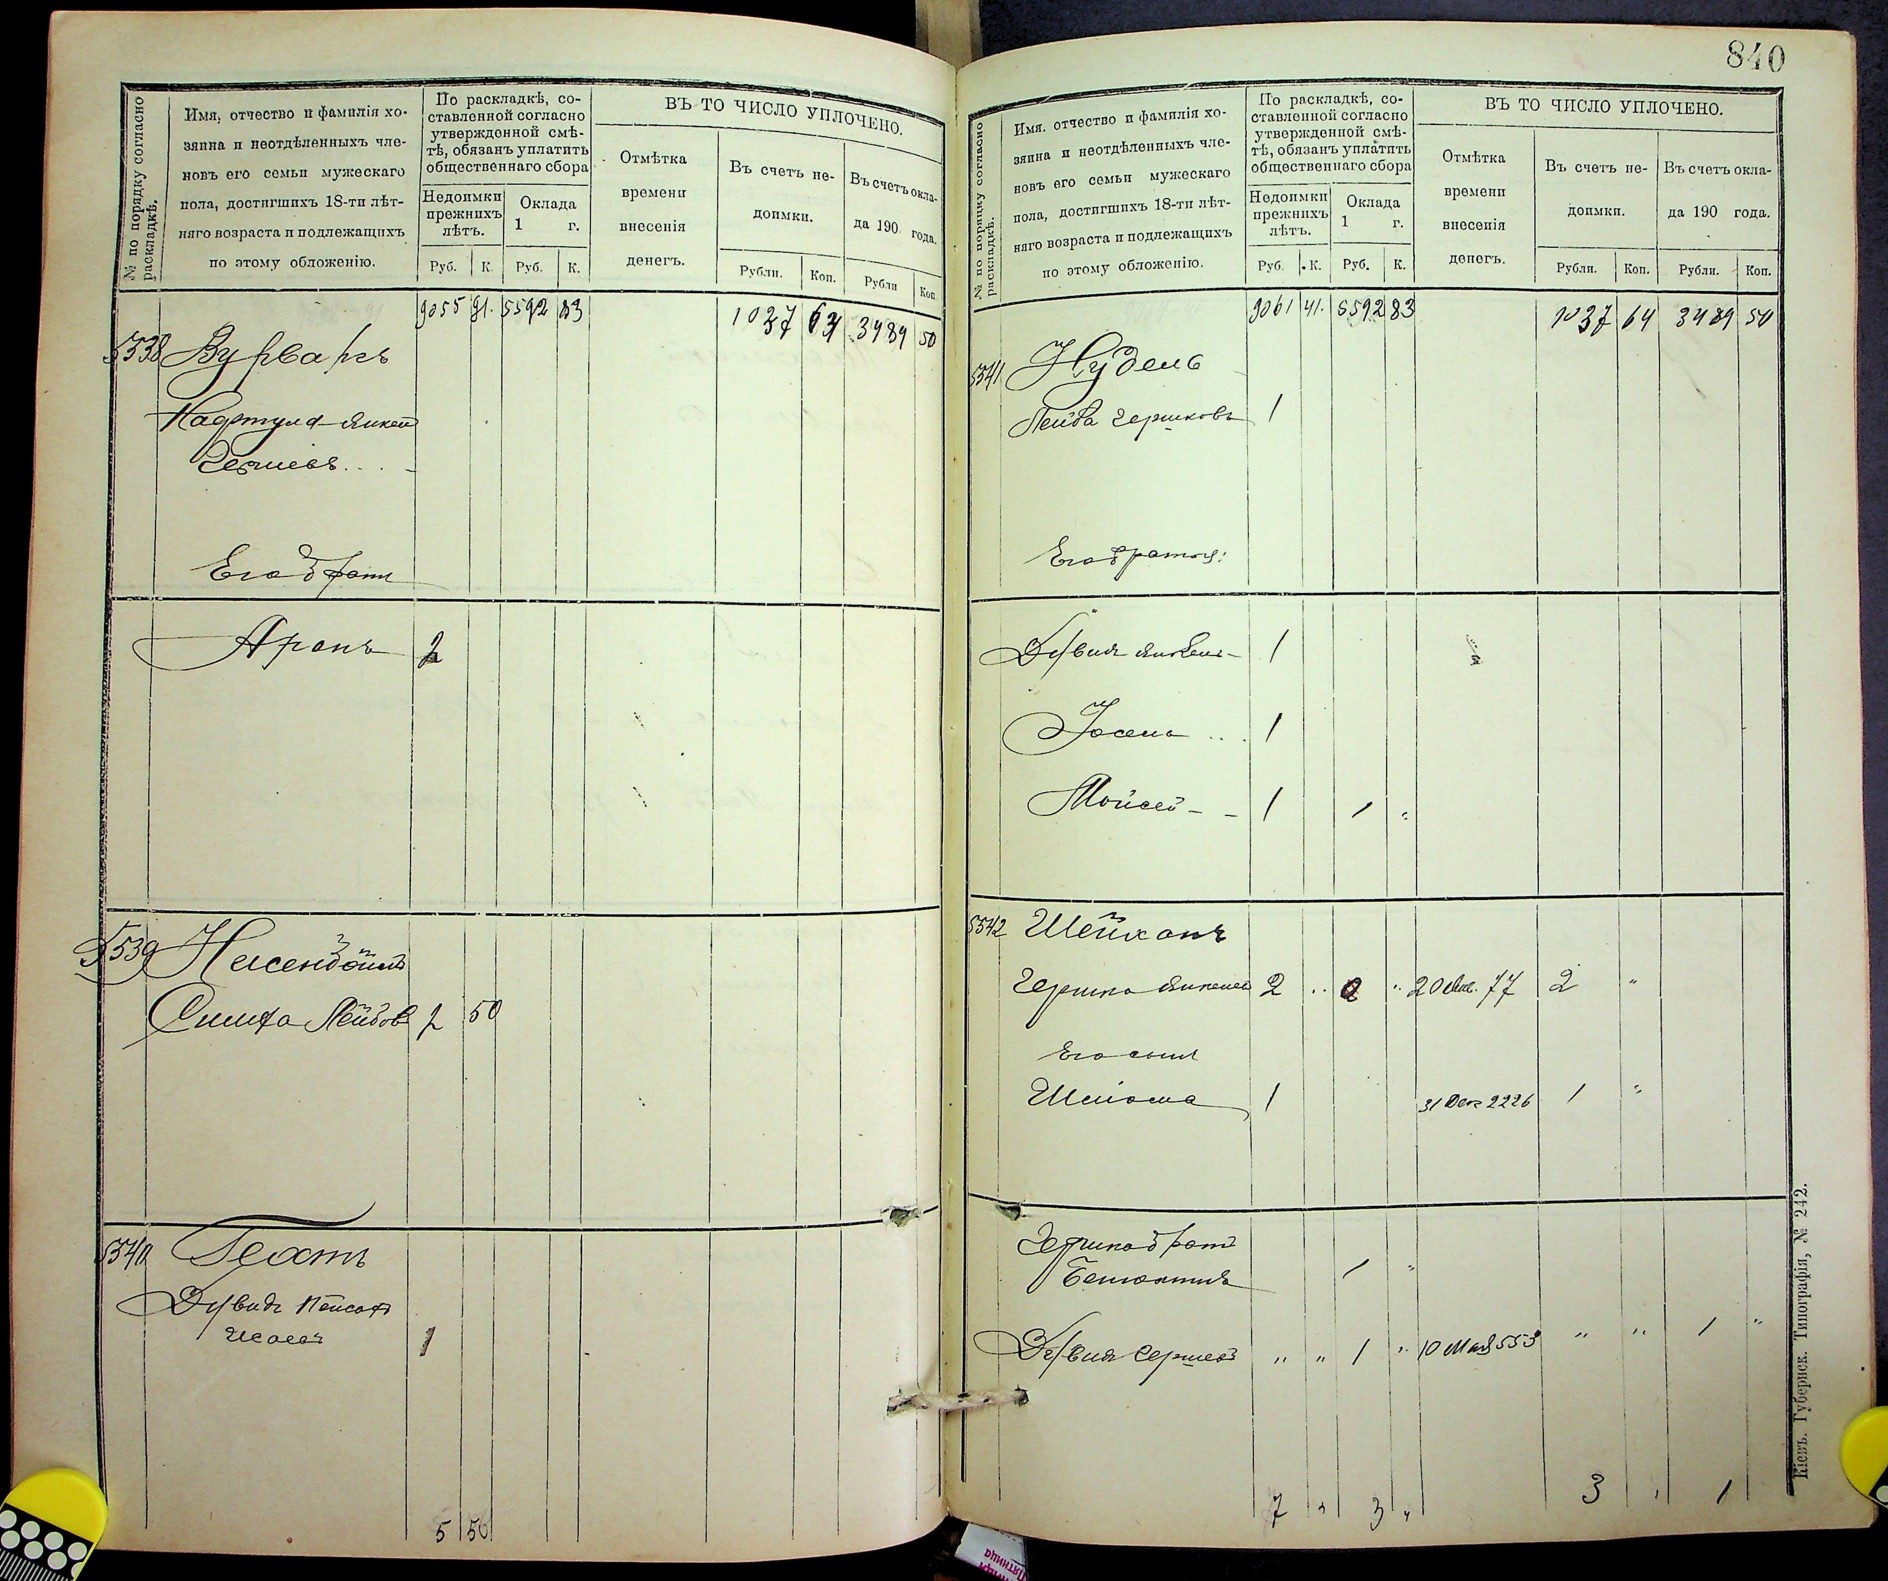 № по порядку согласно раскладкѣ.
Имя, отчество и фамилія хо-
зяина и неотдѣленныхъ чле-
новъ его семьи мужескаго
пола, достигшихъ 18-ти лѣт-
няго возраста и подлежащихъ
по этому обложенію.
По раскладкѣ, со-
ставленной согласно
утвержденной смѣ-
тѣ, обязанъ уплатить
общественнаго сбора
Недоимки
прежнихъ
лѣтъ.
Оклада
1 г.
Руб. К. Руб. К.
ВЪ ТО ЧИСЛО УПЛОЧЕНО.
Отмѣтка
времени
внесенія
денегъ.
Въ счетъ не-
доимки.
Въ счетъ окла-
да 190 года.
Рубли. Коп. Рубли Коп
9055 91. 5592 83 1037 64 3489 50
5538
Нафтула-Янкель
Гершевъ...
Его братъ
Аронъ 2
5539
Симха Лейбов 2 50
5540 Гехтъ
Дувидъ Пейсах
1
5 50
840
№ по порядку согласно раскладкѣ.
Имя. отчество и фамилія хо-
зяина и неотдѣленныхъ чле-
новъ его семьи мужескаго
пола, достигшихъ 18-ти лѣт-
няго возраста и подлежащихъ
по этому обложенію.
По раскладкѣ, со-
ставленной согласно
утвержденной смѣ-
тѣ, обязанъ уплатить
общественнаго сбора
Недоимки
прежнихъ
лѣтъ.
Оклада
1 г.
Руб. К. Руб. К.
ВЪ ТО ЧИСЛО УПЛОЧЕНО.
Отмѣтка
времени
внесенія
денегъ.
Въ счетъ не-
доимки.
Въ счетъ окла-
да 190 года.
Рубли. Коп. Рубли. Коп.
9061 41. 5592 83 1037 64 3489 50
5541 Нудель
Лейба Гершковъ 1
Его братья:
Дувидъ Янкель - 1
Іосель ... 1
Мойсей - - 1 1 "
5542 Шейхонъ
Гершко Янкелев 2 .. 2 " 20 77 2 "
Его сынъ
1 31 Дек 2226 1 "
Гершка братъ
1 "
Дувидъ Гершевъ " " 1 " 10 Мая 553 " " 1 "
7 " 3 " 3 " 1
Кіевъ. Губернск. Типографія, № 242.
Пятница